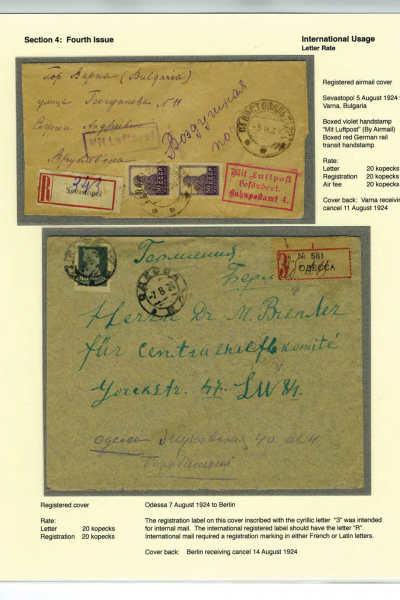 Section 4: Fourth Issue
International Usage
Letter Rate
гор Варна (Bulgaria)
улица Богданова № 11
Mit Luftpost
Воздушная
R
248
Sevastopol
Mit Luftpost
Befördert.
Bahnpostamt 4.
Registered airmail cover
Sevastopol 5 August 1924
Varna, Bulgaria
Boxed violet handstamp
"Mit Luftpost" (By Airmail)
Boxed red German rail
transit handstamp
Rate:
Letter 20 kopecks
Registration 20 kopecks
Air fee 20 kopecks
Cover back: Varna receiving
cancel 11 August 1924
Германия
ОДЕССА
-7.8.24
№ 581
ОДЕССА
Herrn Dr. M. Brender
für Centralhilfskomité
Yorckstr. 47. SW 84.
Одесса
Registered cover
Odessa 7 August 1924 to Berlin
Rate:
Letter 20 kopecks
Registration 20 kopecks
The registration label on this cover inscribed with the cyrillic letter "З" was intended
for internal mail. The international registered label should have the letter "R".
International mail required a registration marking in either French or Latin letters.
Cover back: Berlin receiving cancel 14 August 1924